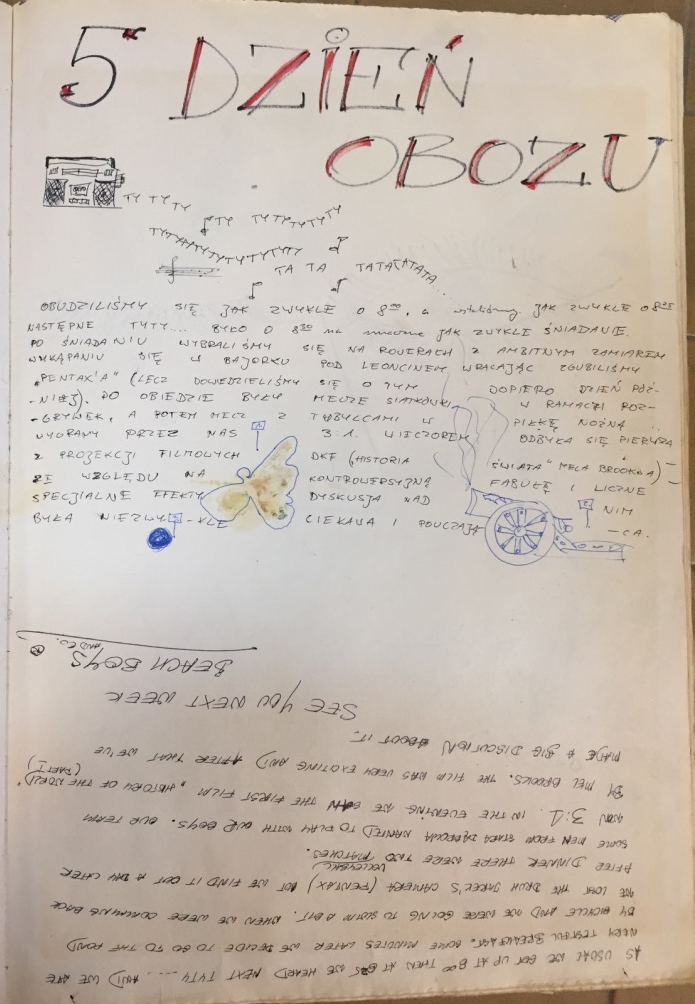 5 DZIEŃ
OBOZU
TY TY TY
TY TY TYTYTYTY
TYTYTYTYTYTYTYTYTYTY
TA TA TATATATATA...
OBUDZILIŚMY SIĘ JAK ZWYKLE O 8⁰⁰, a wstaliśmy JAK ZWYKLE O 8²⁵
NASTĘPNE TYTY... BYŁO O 8³⁰ na smaczne JAK ZWYKLE ŚNIADANIE.
PO ŚNIADANIU WYBRALIŚMY SIĘ NA ROWERACH Z AMBITNYM ZAMIAREM
WYKĄPANIU SIĘ W BAJORKU POD LEONCINEM. WRACAJĄC ZGUBILIŚMY
„PENTAX'A" (LECZ DOWIEDZIELIŚMY SIĘ O TYM DOPIERO DZIEŃ PÓŹ-
-NIEJ). PO OBIEDZIE BYŁY MECZE SIATKÓWKI W RAMACH ROZ-
-GRYWEK, A POTEM MECZ Z TUBYLCAMI W PIŁKĘ NOŻNĄ ..
WYGRANY PRZEZ NAS 3:1. WIECZOREM ODBYŁA SIĘ PIERWSZA
Z PROJEKCJI FILMOWYCH DKF (HISTORIA ŚWIATA" MELA BROOKSA) –
ZE WZGLĘDU NA KONTROWERSYJNĄ FABUŁĘ I LICZNE
SPECJALNE EFEKTY DYSKUSJA NAD NIM
BYŁA NIEZWY-KLE CIEKAWA I POUCZAJĄ -CA.
AS USUAL WE GOT UP AT 8⁰⁰ THEN AT 8³⁰ WE HEARD NEXT TYTY .... AND WE ATE
VERY TESTFUL BREAKFAST. SOME MINUTES LATER WE DECIDE TO GO TO THE POND
BY BICYCLE AND WE WERE GOING TO SWIM A BIT. WHEN WE WERE COMMING BACK
WE LOST THE DRUH CAMERA (PENTAX) BUT WE FIND IT OUT A DAY LATER
AFTER DINNER THERE WERE TWO VOLLEYBALL MATCHES.
SOME MEN FROM STARA DĄBROWA WANTED TO PLAY WITH OUR BOYS. OUR TEAM
WON 3:1. IN THE EVENING WE SAW THE FIRST FILM „HISTORY OF THE WORLD" (PART I)
BY MEL BROOKS. THE FILM WAS VERY EXCITING AND AFTER THAT WE'VE
MADE A BIG DISCUTION ABOUT IT.
SEE YOU NEXT WEEK
BEACH BOYS
AND CO. ®